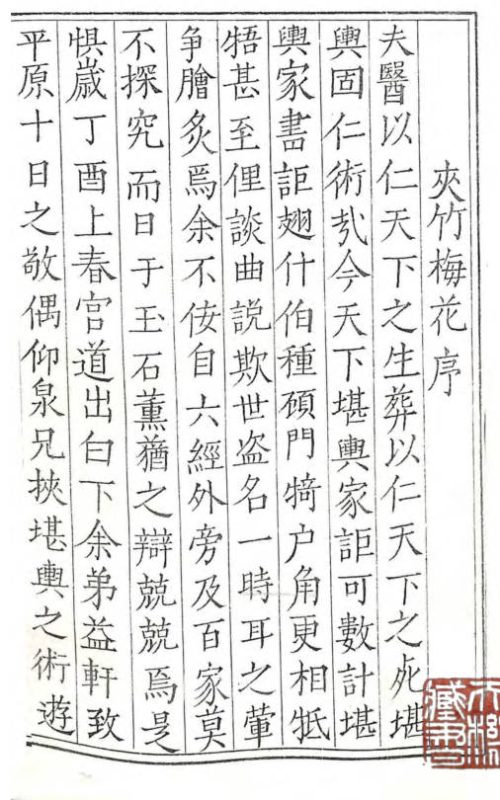 夾竹梅花序
夫醫以仁天下之生葬以仁天下之死堪
輿固仁術㢤今天下堪輿家詎可數計堪
輿家書詎翅什伯種碩門犄户角更相牴
牾甚至俚談曲說欺世盗名一時耳之輩
争膾炙焉余不佞自六經外旁及百家莫
不探究而日于玉石薰猶之辯兢兢焉是
惧嵗丁酉上春官道出白下余弟益軒致
平原十日之敬偶仰泉兄挾堪輿之術遊